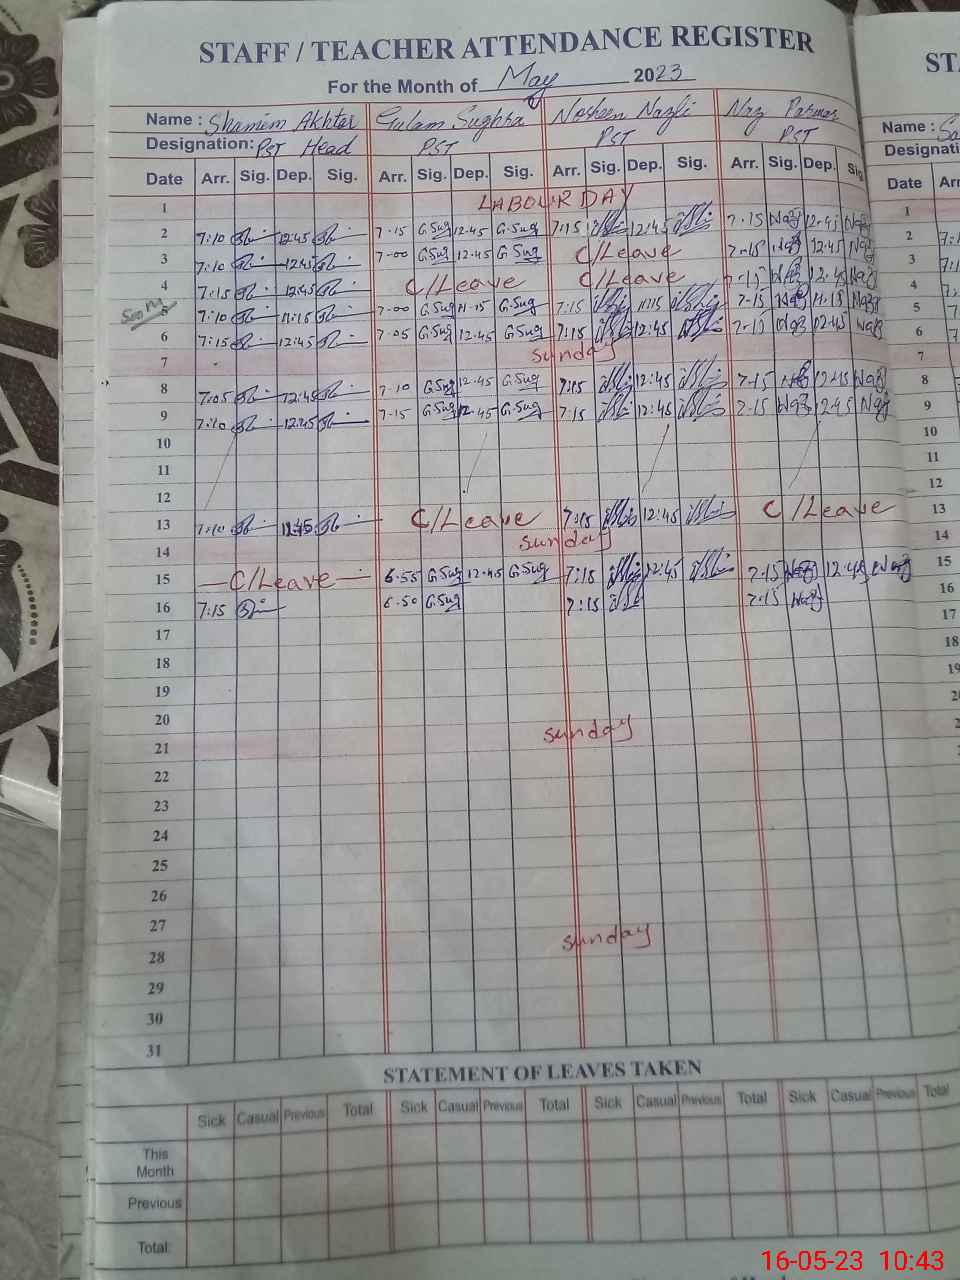 STAFF / TEACHER ATTENDANCE REGISTER
For the Month of May 2023
Name : Shamim Akhter Gulam Sughra Nosheen Nazli Naz Parwar
Designation: PST Head PST PST PST
Date Arr. Sig. Dep. Sig. Arr. Sig. Dep. Sig. Arr. Sig. Dep. Sig. Arr. Sig. Dep. Sig
1 LABOUR DAY
2 7:10 12:45 7-15 G.Sug 12.45 G.Sug 7:15 12:45 7-15 Naz 12.45 Naz
3 7:10 12:45 7-00 G.Sug 12.45 G.Sug C/Leave 7-15 Naz 12.45 Naz
4 7:15 12:45 C/Leave C/Leave 7-15 Naz 12.45 Naz
5 7:10 11:15 7-00 G.Sug 11-15 G.Sug 7:15 11:15 7-15 Naz 11.15 Naz
6 7:15 12:45 7-05 G.Sug 12.45 G.Sug 7:15 12:45 7-15 Naz 12.45 Naz
7 sunday
8 7:05 12:45 7-10 G.Sug 12.45 G.Sug 7:15 12:45 7-15 Naz 12.45 Naz
9 7:10 12:45 7-15 G.Sug 12.45 G.Sug 7-15 12:45 7-15 Naz 12.45 Naz
10
11
12
13 7:10 12:45 C/Leave 7:15 12:45 C/Leave
14 sunday
15 C/Leave 6.55 G.Sug 12.45 G.Sug 7:15 12:45 7.15 Naz 12.45 Naz
16 7:15 6.50 G.Sug 7:15 7.15 Naz
17
18
19
20
21 sunday
22
23
24
25
26
27
28 sunday
29
30
31
STATEMENT OF LEAVES TAKEN
Sick Casual Previous Total Sick Casual Previous Total Sick Casual Previous Total Sick Casual Previous Total
This
Month
Previous
Total:
ST
Name :
Designati
Date Arr
1
2
3
4
5
6
7
8
9
10
11
12
13
14
15
16
17
18
19
16-05-23 10:43